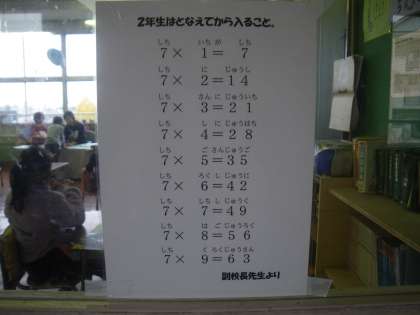 2年生はとなえてから入ること。
しち いち が しち
7× 1= 7
しち に じゅうし
7× 2=14
しち さん にじゅういち
7× 3=21
しち し にじゅうはち
7× 4=28
しち ご さんじゅうご
7× 5=35
しち ろく しじゅうに
7× 6=42
しち しち しじゅうく
7× 7=49
しち は ごじゅうろく
7× 8=56
しち く ろくじゅうさん
7× 9=63
副校長先生より